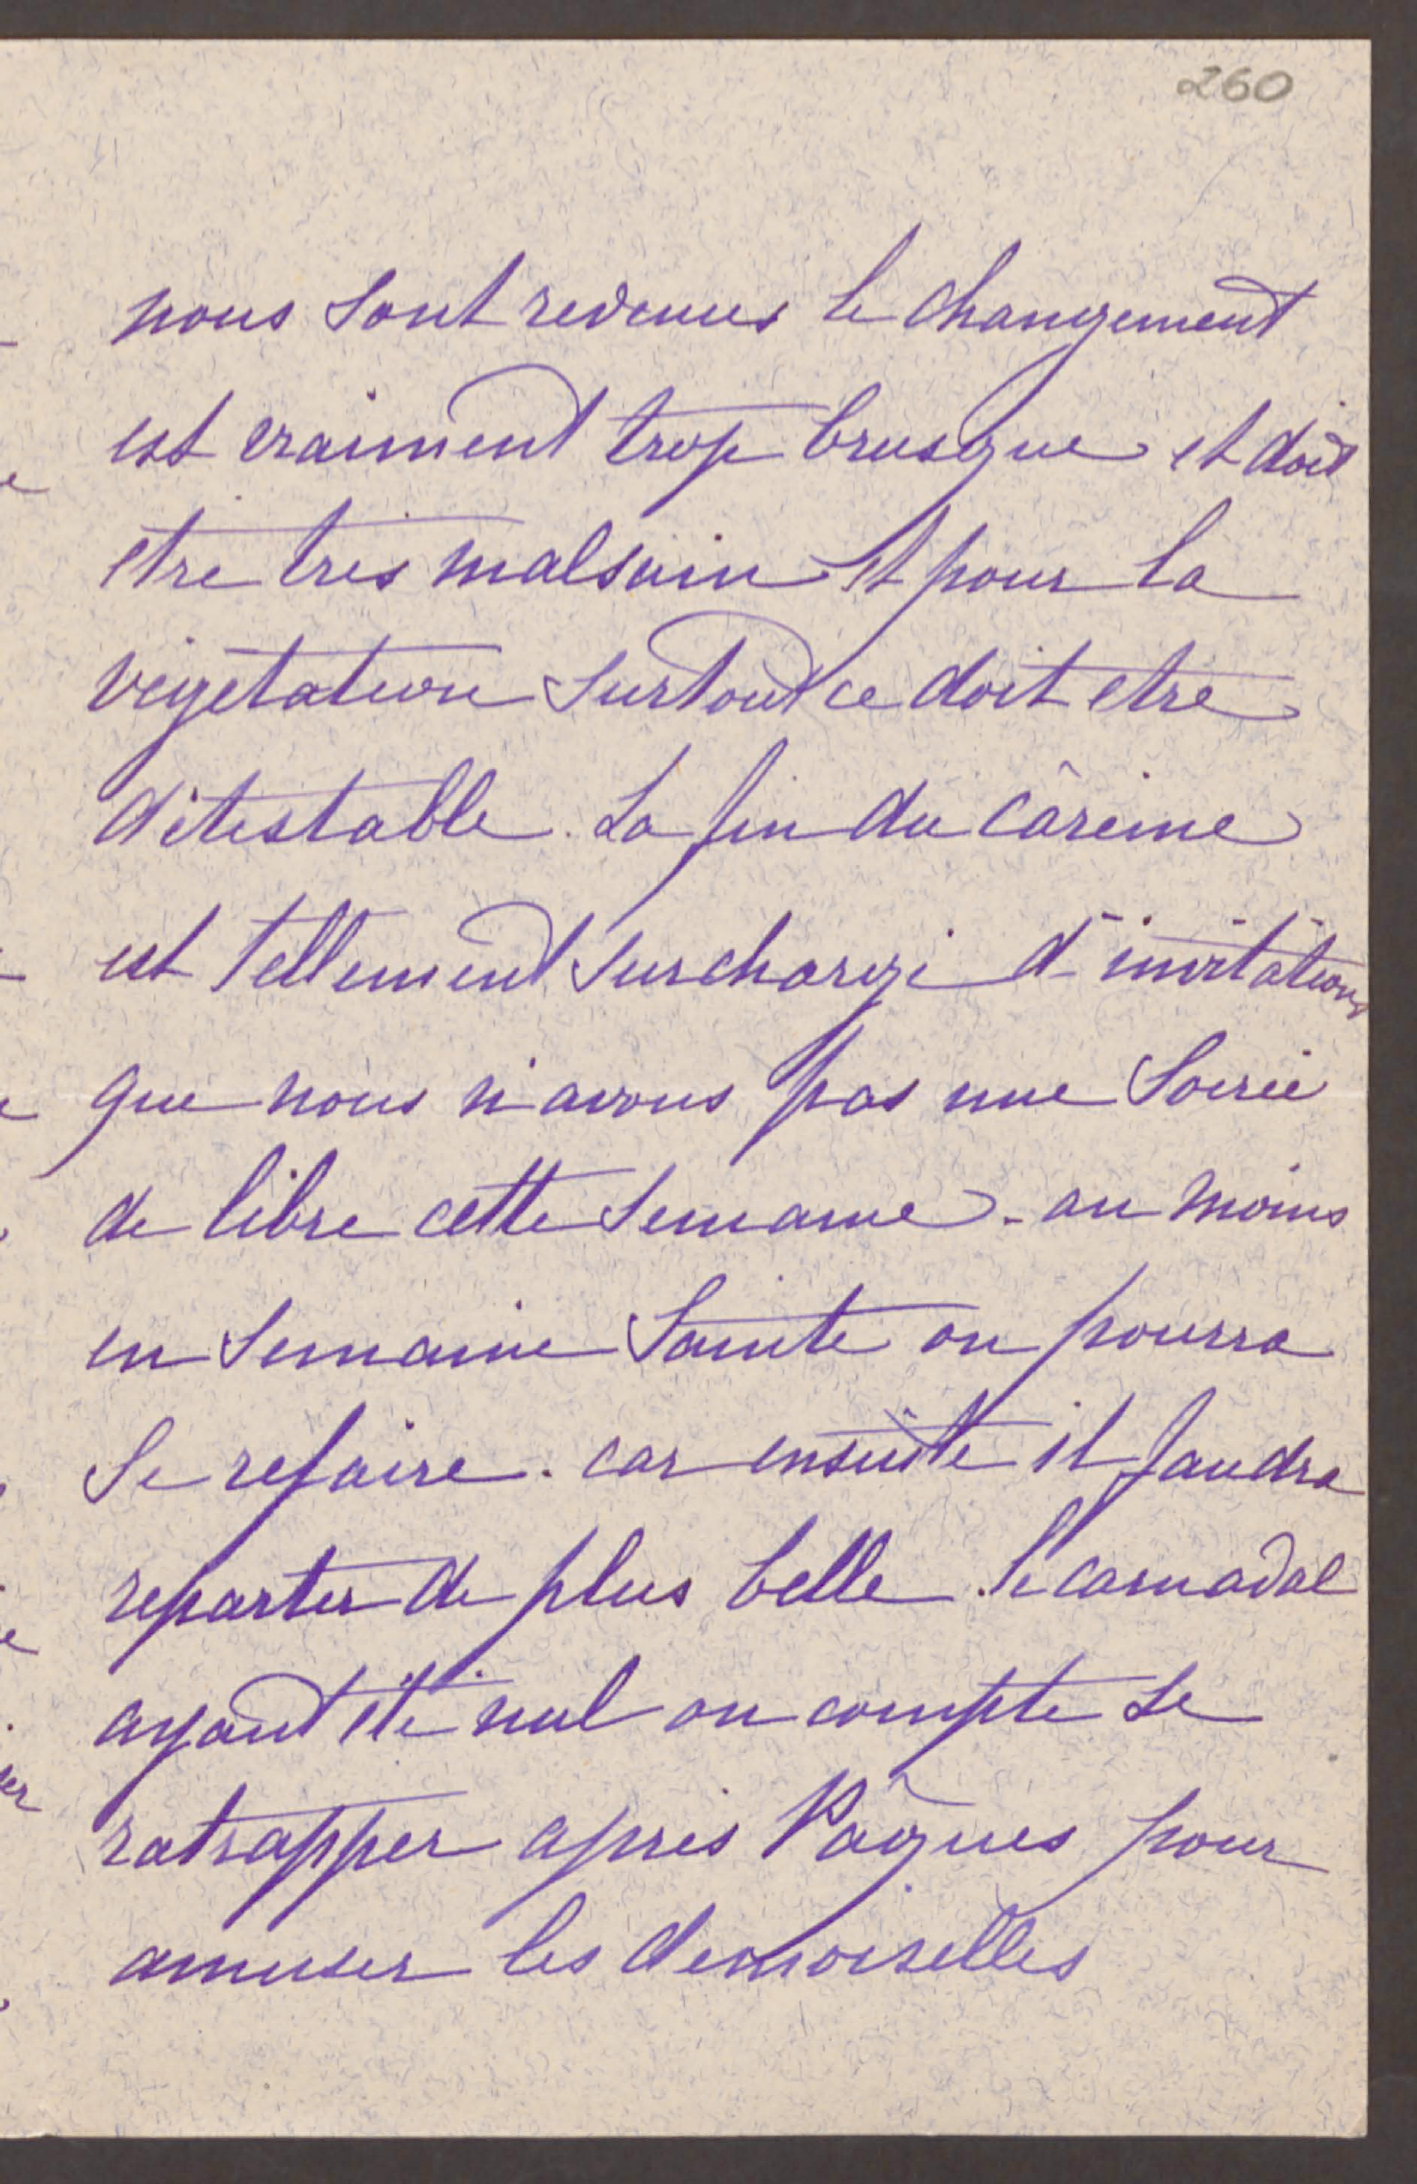 260
nous sont revenues le changement
est vraiment trop brusque et doit
etre très malsain et pour la
végétation surtout ce doit etre
détestable. La fin du cârème
est tellement surchargé d'invitations
que nous n'avons pas une Soirée
de libre cette semaine. au moins
en semaine Sainte on pourra
Se refaire. car ensuite il faudra
repartir de plus belle. le carnaval
ayant été nul on compte se
ratrapper après Pâques pour
amuser les demoiselles